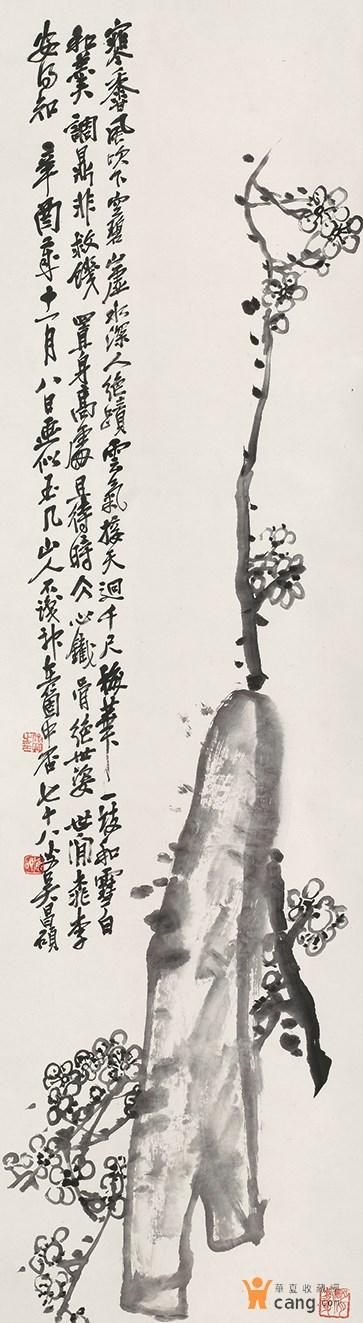 寒香風吹下空碧山虛水深人絕蹟雲氣接天迴千尺梅華一枝和雪白
和羹調鼎非救饑置身高處且待時仌心鐵骨絕世姿世間桃李
安得知 辛酉歲十一月八日畫似玉几山人不識神在箇中否七十八叟吳昌碩
華夏收藏網
cang.com